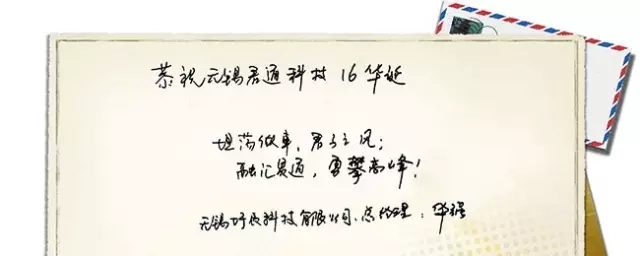 恭祝无锡君通科技16华诞
坦荡做事,君子之风;
融汇贯通,勇攀高峰!
无锡 科技有限公司、总经理:华强